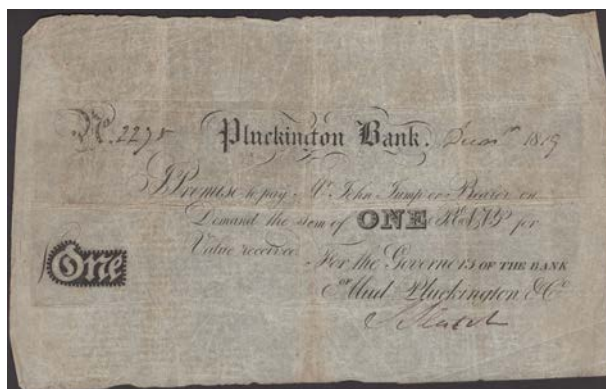 No. 2295 Pluckington Bank. 1819
I Promise to pay Mr. John Jump or Bearer on
Demand the sum of ONE for
Value received
For the Governors OF THE BANK
One
of Mud Pluckington & Co.